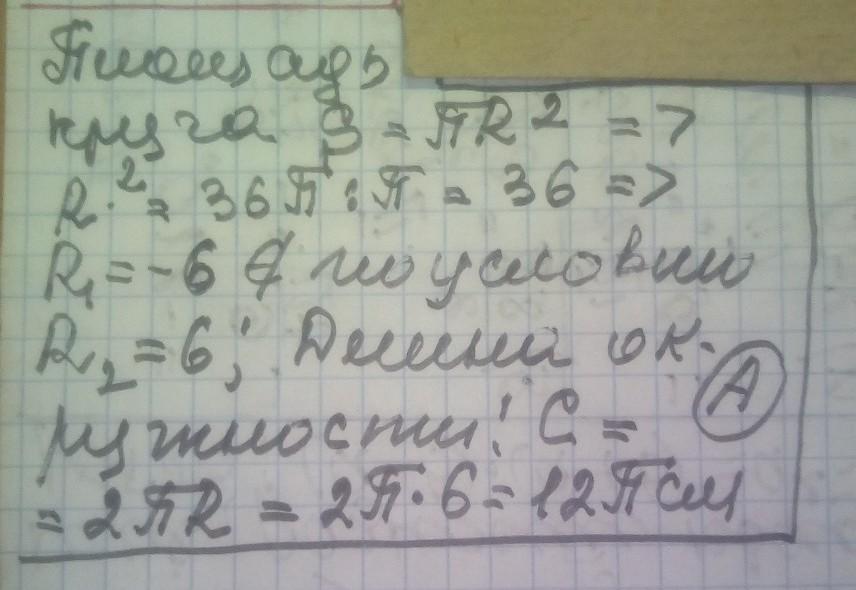 Площадь
круга S = πR² =>
R² = 36π : π = 36 =>
R₁ = -6 ∉ по условию
R₂ = 6; Длина ок-
ружности: C =
= 2πR = 2π · 6 = 12π см
А